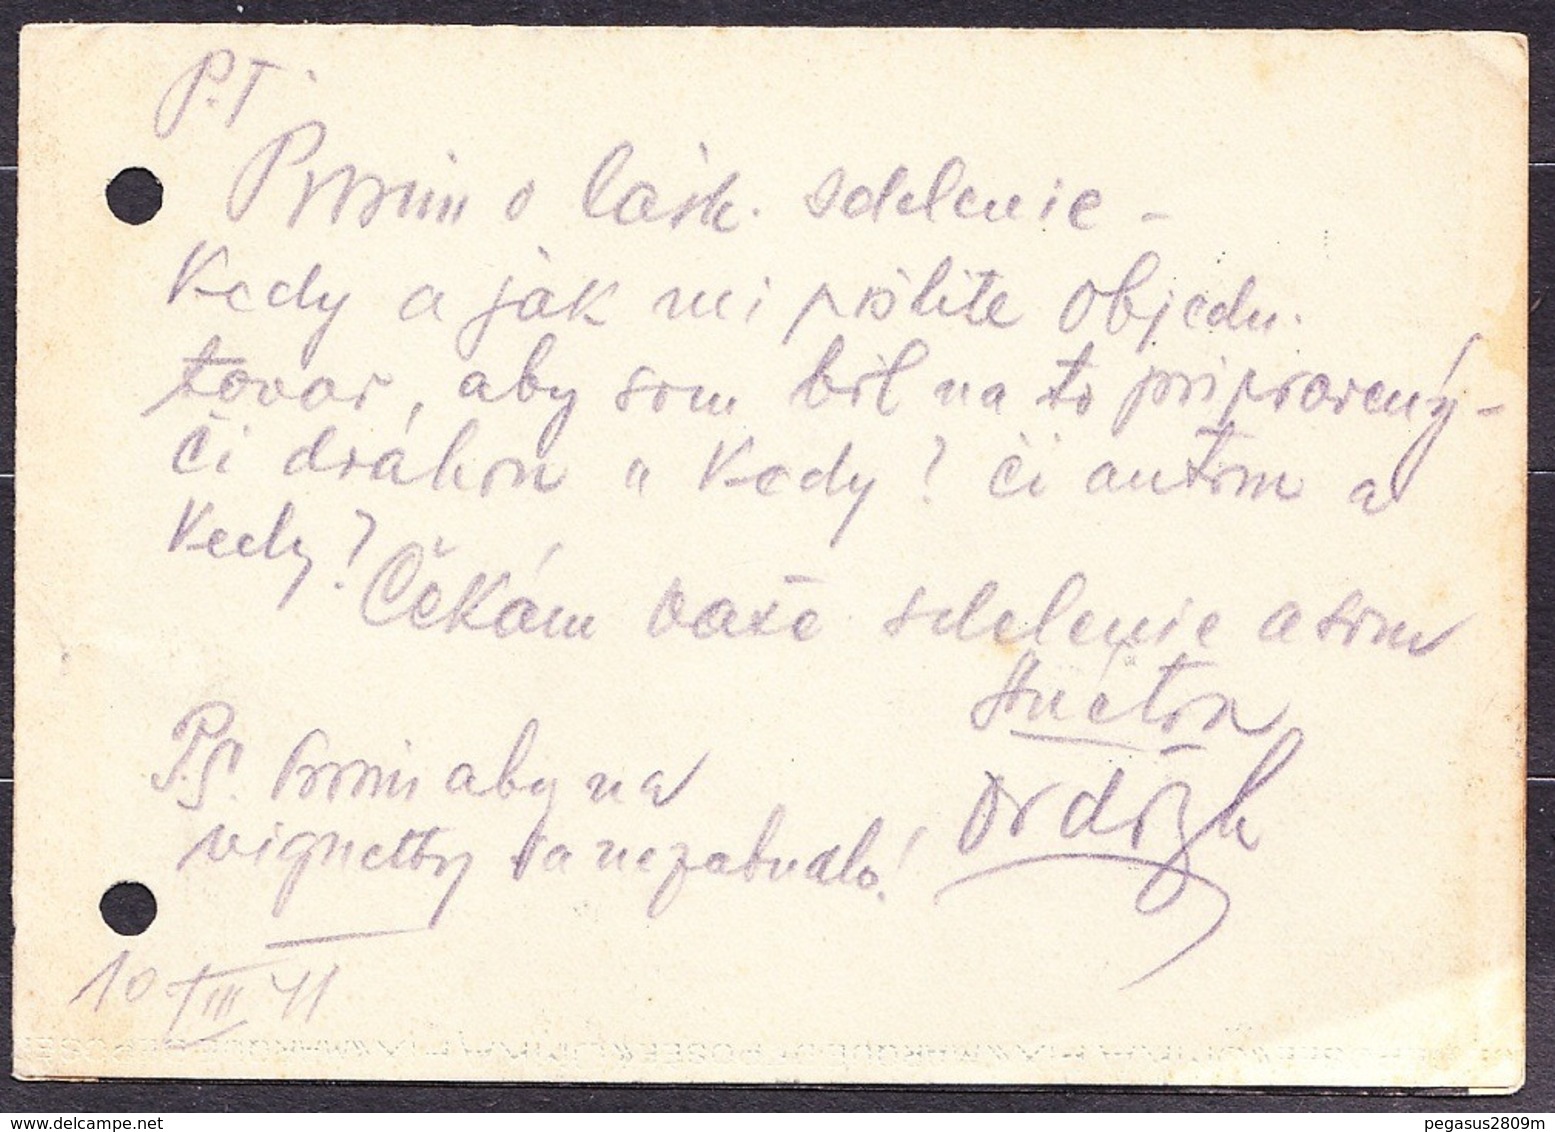 P.T.
Prosim o lásk. sdelenie -
Kedy a jak mi pošlite objedn.
tovar, aby som bil na to pripravený -
či dráhou a kedy? či autom a
kedy?
Čekám vaše sdelenie a som
s úctou
P.S. Prosim aby na
vignetty sa nezabudlo!
10/III 41
pegasus2809m